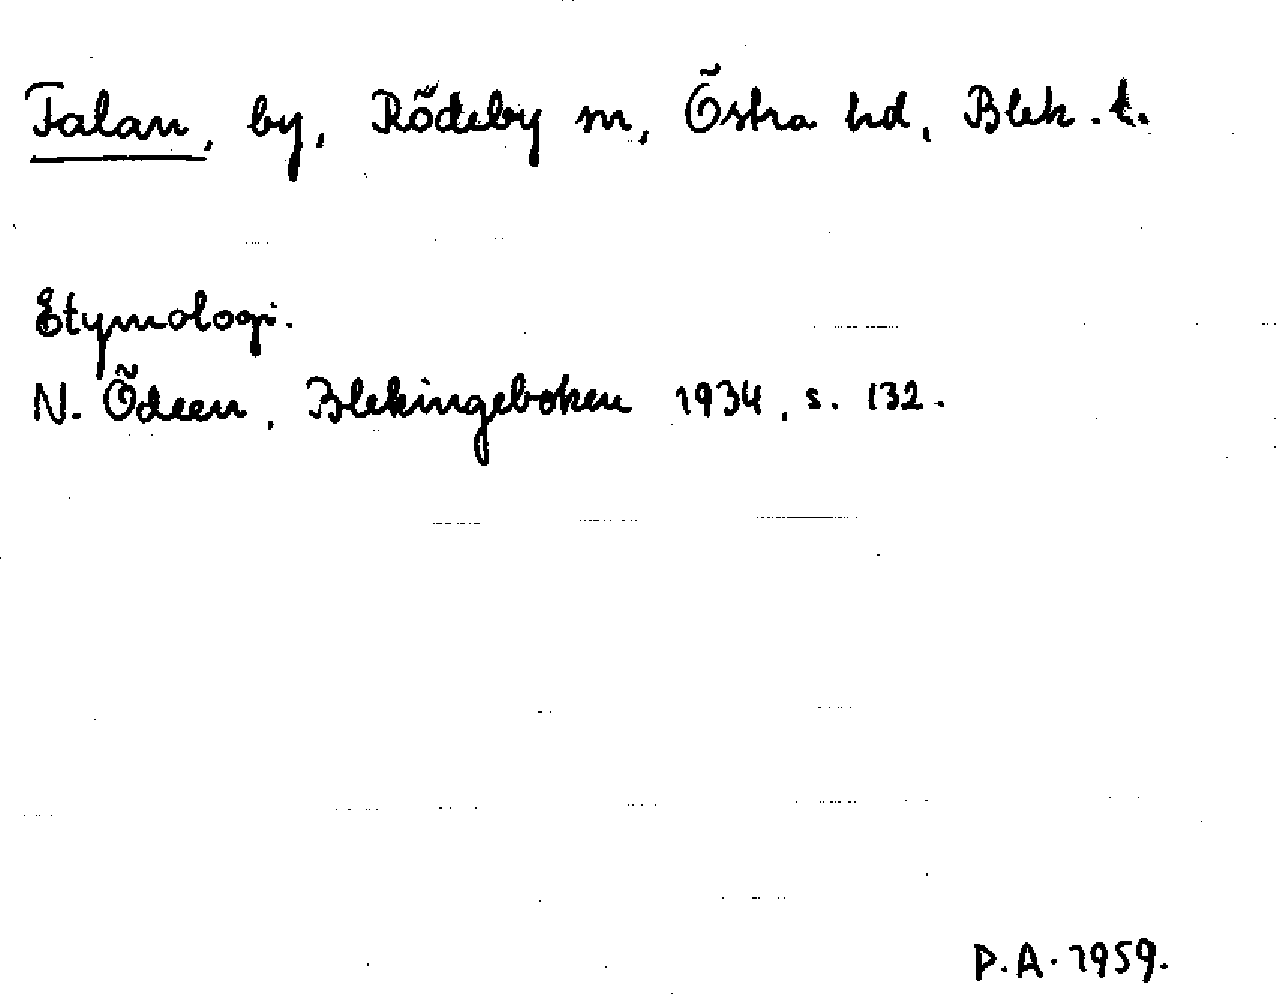 Talan, by, Rödeby sn, Östra hd, Blek. l.
Etymologi.
N. Ödeen, Blekingeboken 1934, s. 132.
P.A. 1959.